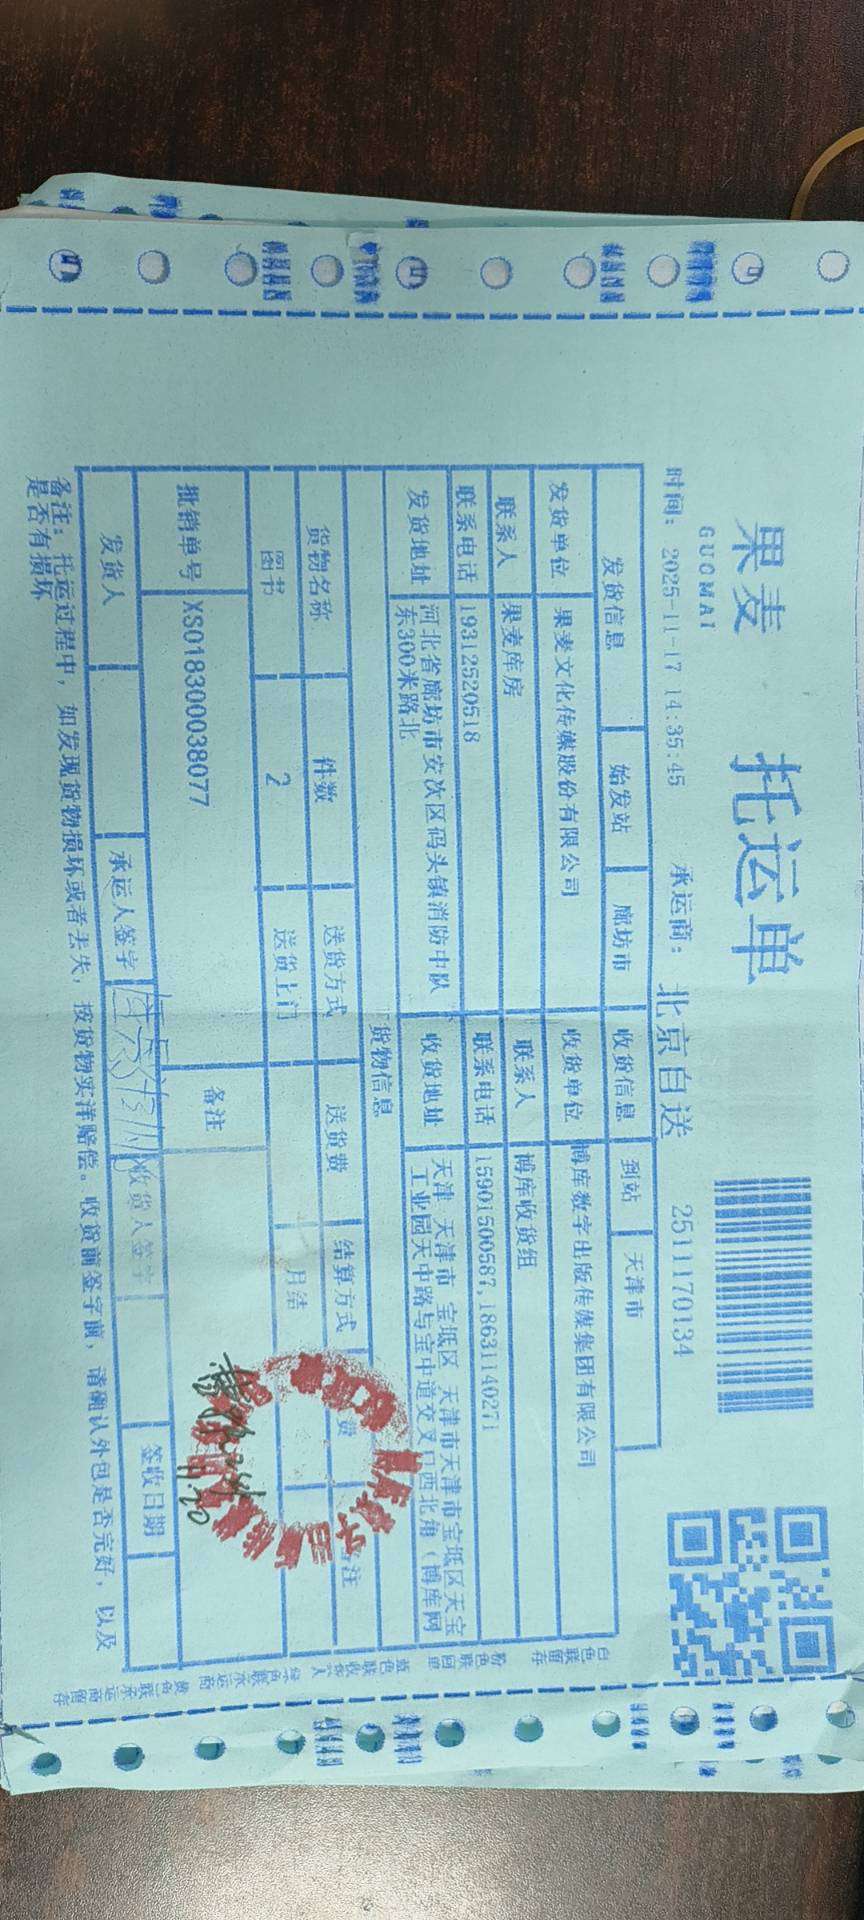 果麦 托运单
GUOMAI
时间： 2025-11-17 14:35:45 承运商： 北京自送 2511170134
发货信息 始发站 廊坊市 收货信息 到站 天津市
发货单位 果麦文化传媒股份有限公司 收货单位 博库数字出版传媒集团有限公司
联系人 果麦库房 联系人 博库收货组
联系电话 19312520518 联系电话 15901500587,18631140271
发货地址 河北省廊坊市安次区码头镇消防中队 收货地址 天津 天津市 宝坻区 天津市天津市宝坻区天宝
东300米路北 工业园天中路与宝中道交叉口西北角（博库网
货物信息
货物名称 件数 送货方式 送货费 结算方式 费 备注
图书 2 送货上门 月结
批销单号 XS018300038077 备注
发货人 承运人签字 收货人签字 签收日期
备注：托运过程中，如发现货物损坏或者丢失，按货物实洋赔偿。收货前签字前，请确认外包是否完好，以及
是否有损坏
白色联留存 粉色联回单 蓝色联收货人 绿色联承运商 黄色联承运商留存